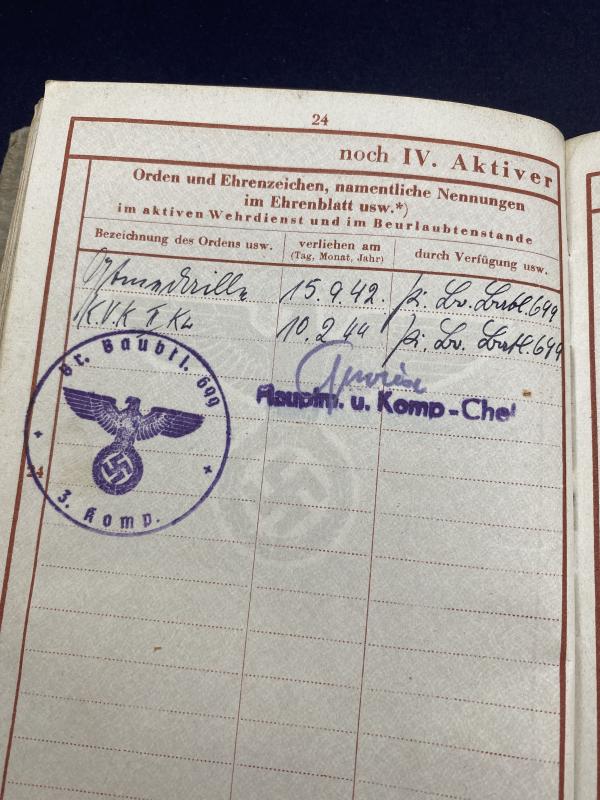 24
noch IV. Aktiver
Orden und Ehrenzeichen, namentliche Nennungen
im Ehrenblatt usw.*)
im aktiven Wehrdienst und im Beurlaubtenstande
Bezeichnung des Ordens usw.
verliehen am
(Tag, Monat, Jahr)
durch Verfügung usw.
Ostmedaille 15.9.42. Br. Batl. 699
K.V.K II Kl 10.2.44 Br. Batl. 699
Hauptm. u. Komp-Chef
Br. Baubtl. 699
3. Komp.